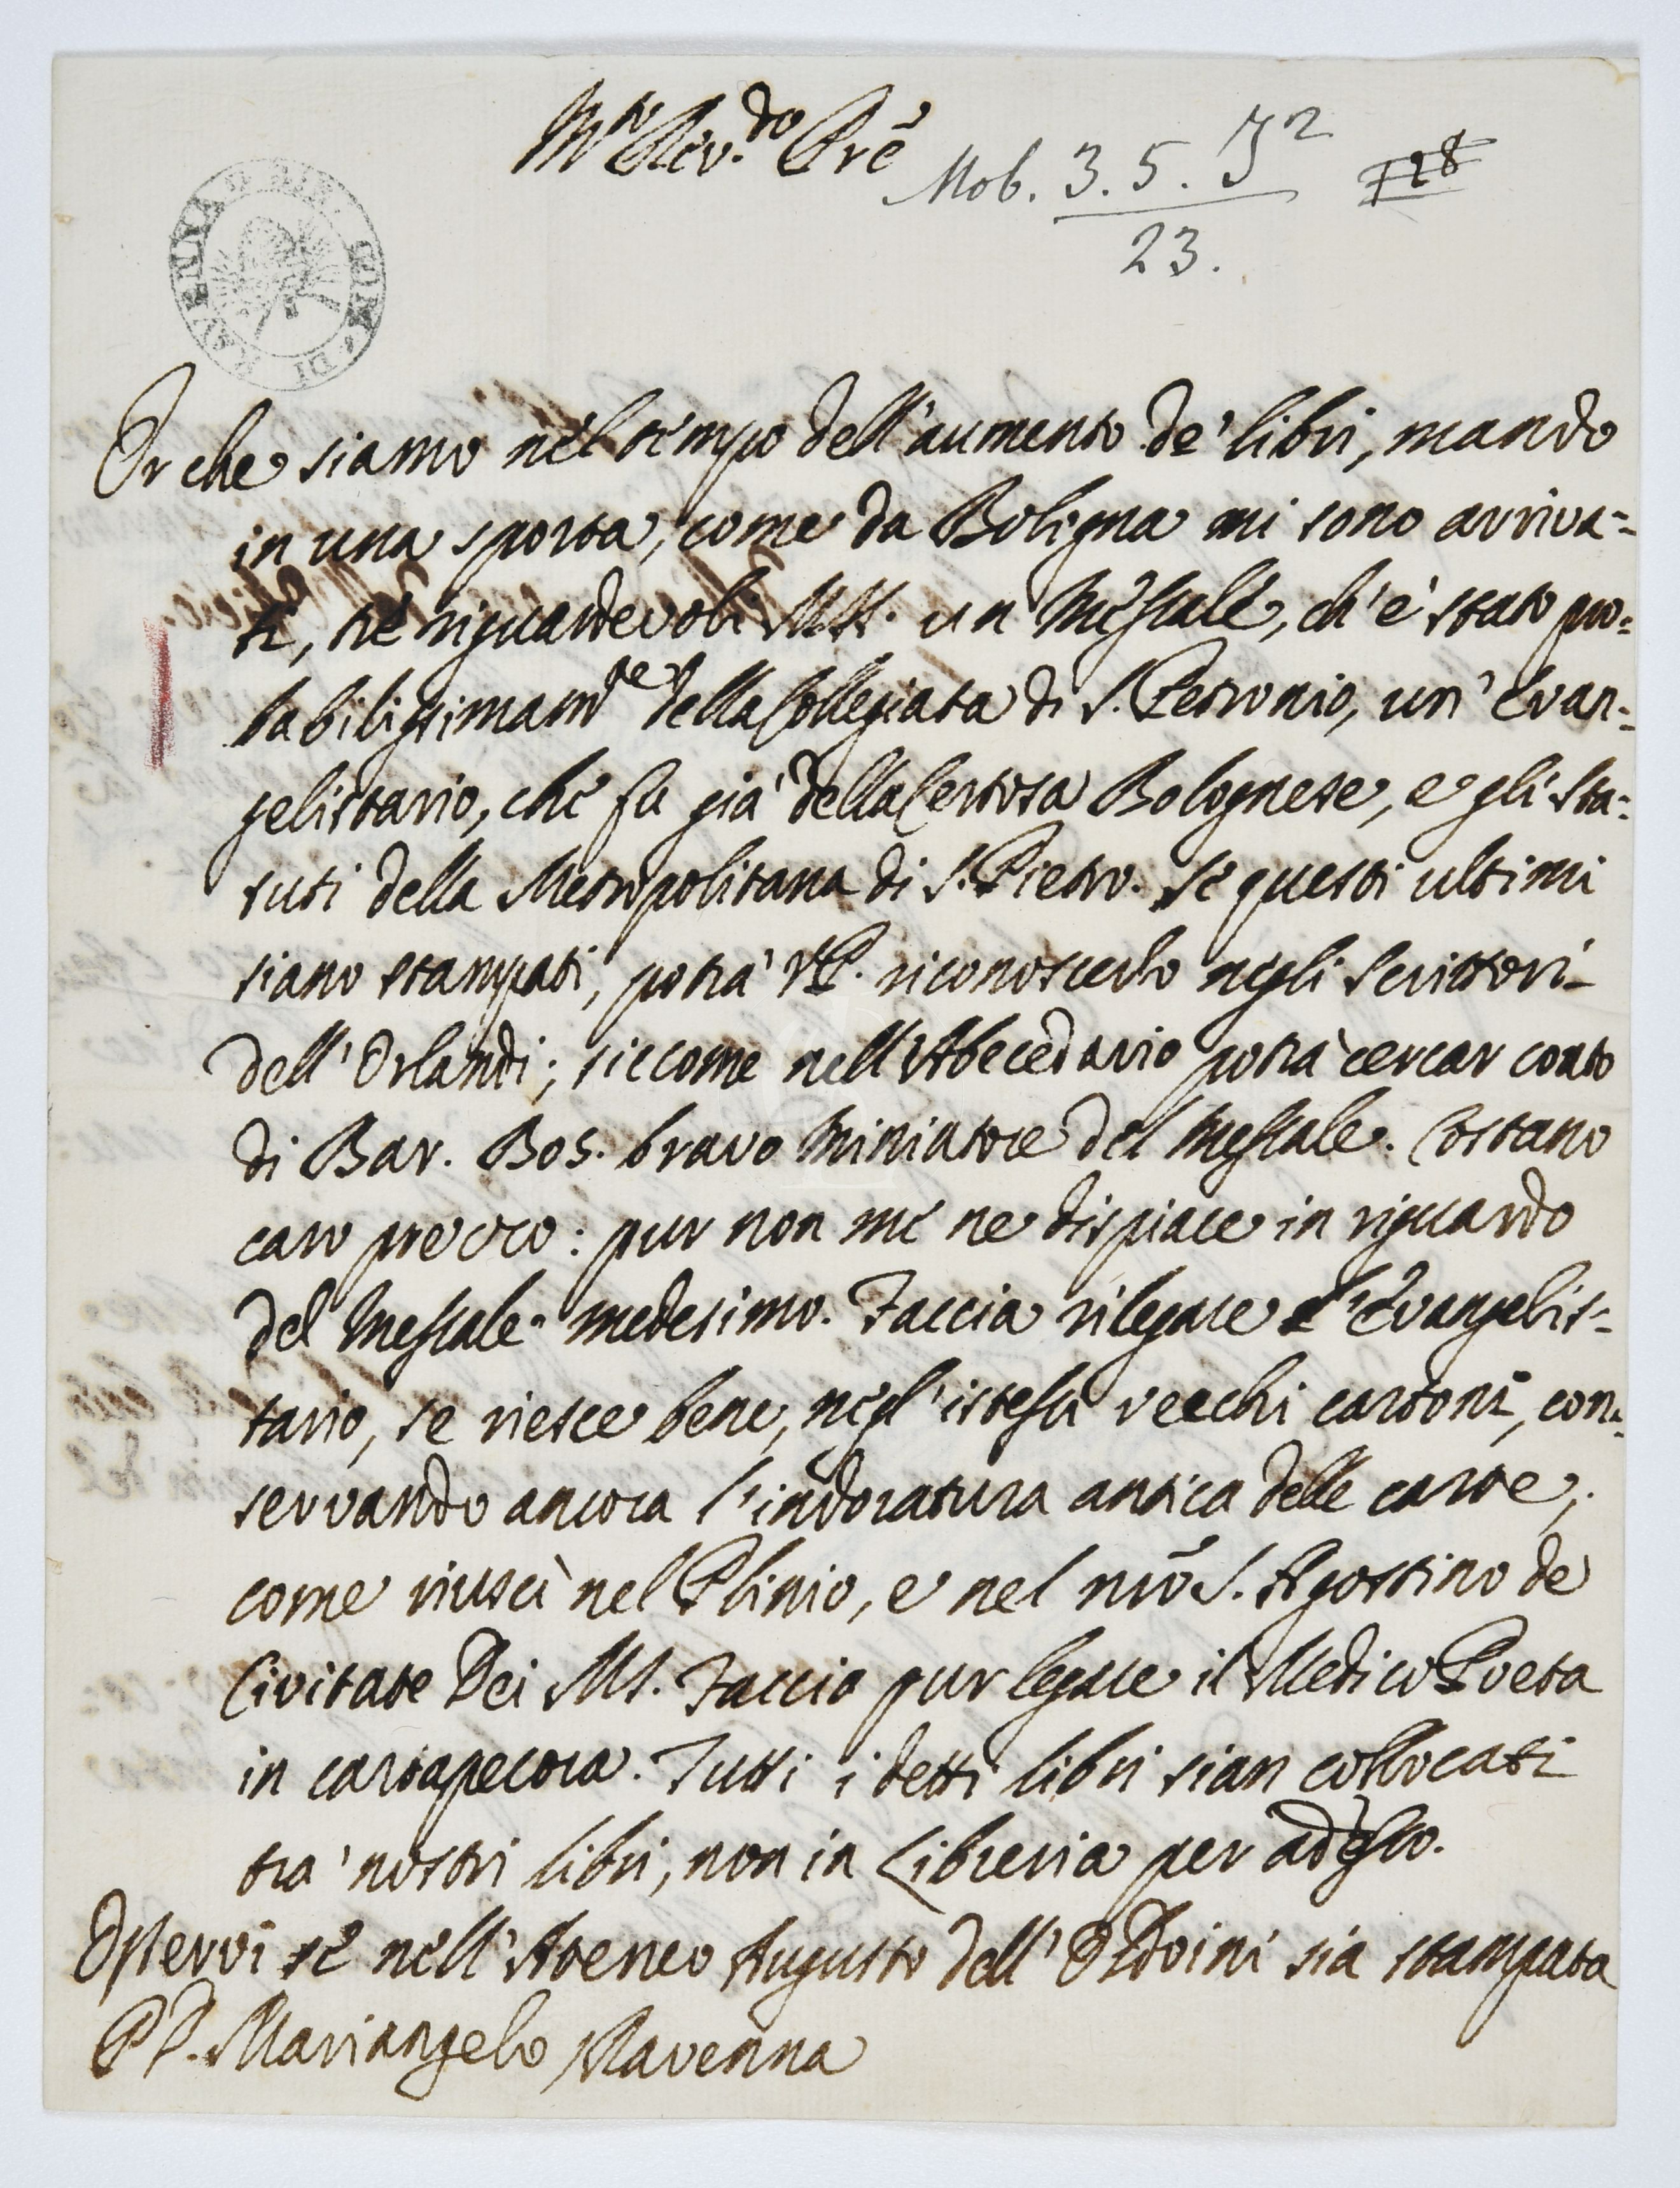 M.to Rev.do Prē
Mob. 3. 5. J2
128
23.
BIB. CLAS. DI RAVENNA
Or che siamo nel tempo dell'aumento de' libri, mando
in una sporta, come da Bologna mi sono arriva=
ti, tré riguardevoli MSS. un Messale, ch'è stato pro=
babilissimam.te della Collegiata di S. Petronio, un' Evan=
gelistario, che fu già della Certosa Bolognese, e gli Sta=
tuti della Metropolitana di S. Pietro. Se questi ultimi
siano stampati, potrà V.P. riconoscerlo negli Scrittori
dell'Orlandi; siccome nell'Abecedario potrà cercar conto
di Bar. Bos. bravo Miniatore del Messale. Costano
caro prezzo: pur non me ne dispiace in riguardo
del Messale medesimo. Faccia rilegare l'Evangelis=
tario, se riesce bene, negl'istessi vecchi cartoni, con=
servando ancora l'indoratura antica delle carte,
come riuscì nel Plinio, e nel nrō S. Agostino de
Civitate Dei MS. Faccia pur legare il Medico Poeta
in cartapecora. Tutti i detti libri sian collocati
tra' nostri libri, non in Libreria per adesso.
Osservi se nell'Ateneo Augusto dell'Oldoini sia stampata
P. D. Mariangelo Ravenna